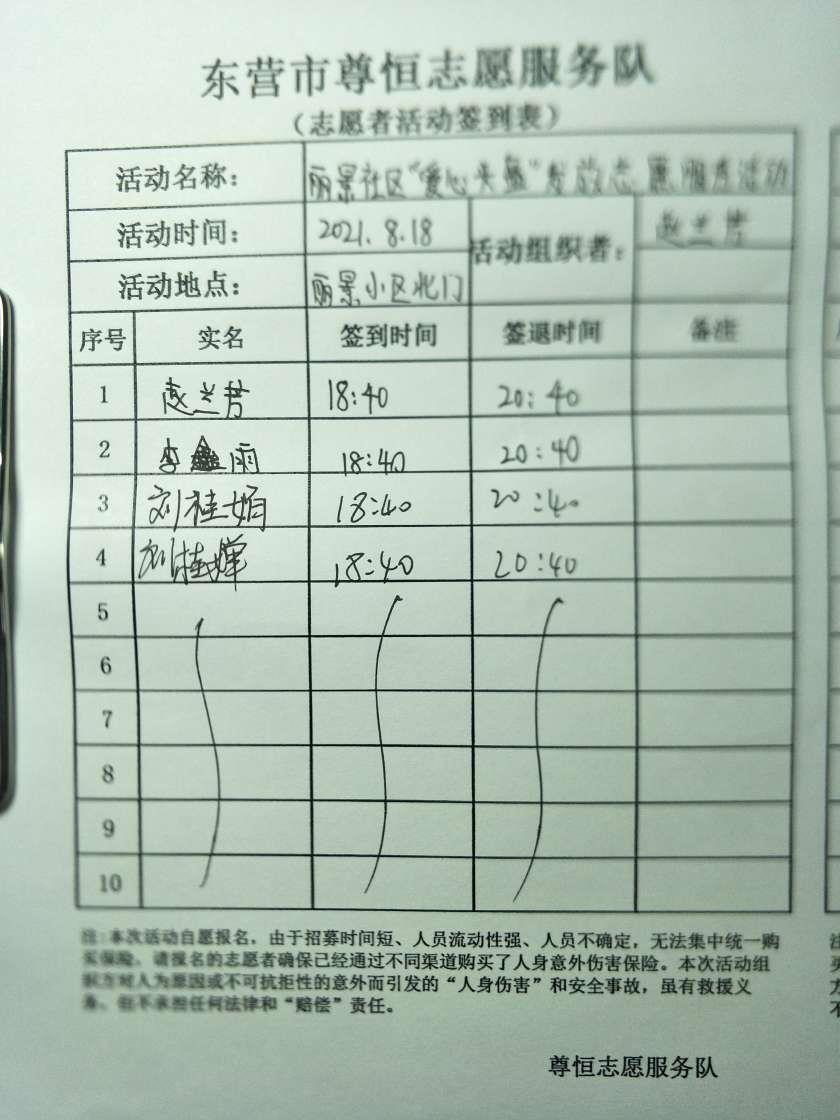 东营市尊恒志愿服务队
（志愿者活动签到表）
活动名称： 丽景社区“爱心头盔”发放志愿服务活动
活动时间： 2021.8.18 活动组织者： 赵兰芳
活动地点： 丽景小区北门
序号 实名 签到时间 签退时间 备注
1 赵兰芳 18:40 20:40
2 李鑫雨 18:40 20:40
3 刘桂娟 18:40 20:40
4 刘桂婵 18:40 20:40
5
6
7
8
9
10
注:本次活动自愿报名，由于招募时间短、人员流动性强、人员不确定，无法集中统一购
买保险。请报名的志愿者确保已经通过不同渠道购买了人身意外伤害保险。本次活动组
织方对人为原因或不可抗拒性的意外而引发的“人身伤害”和安全事故，虽有救援义
务，但不承担任何法律和“赔偿”责任。
尊恒志愿服务队